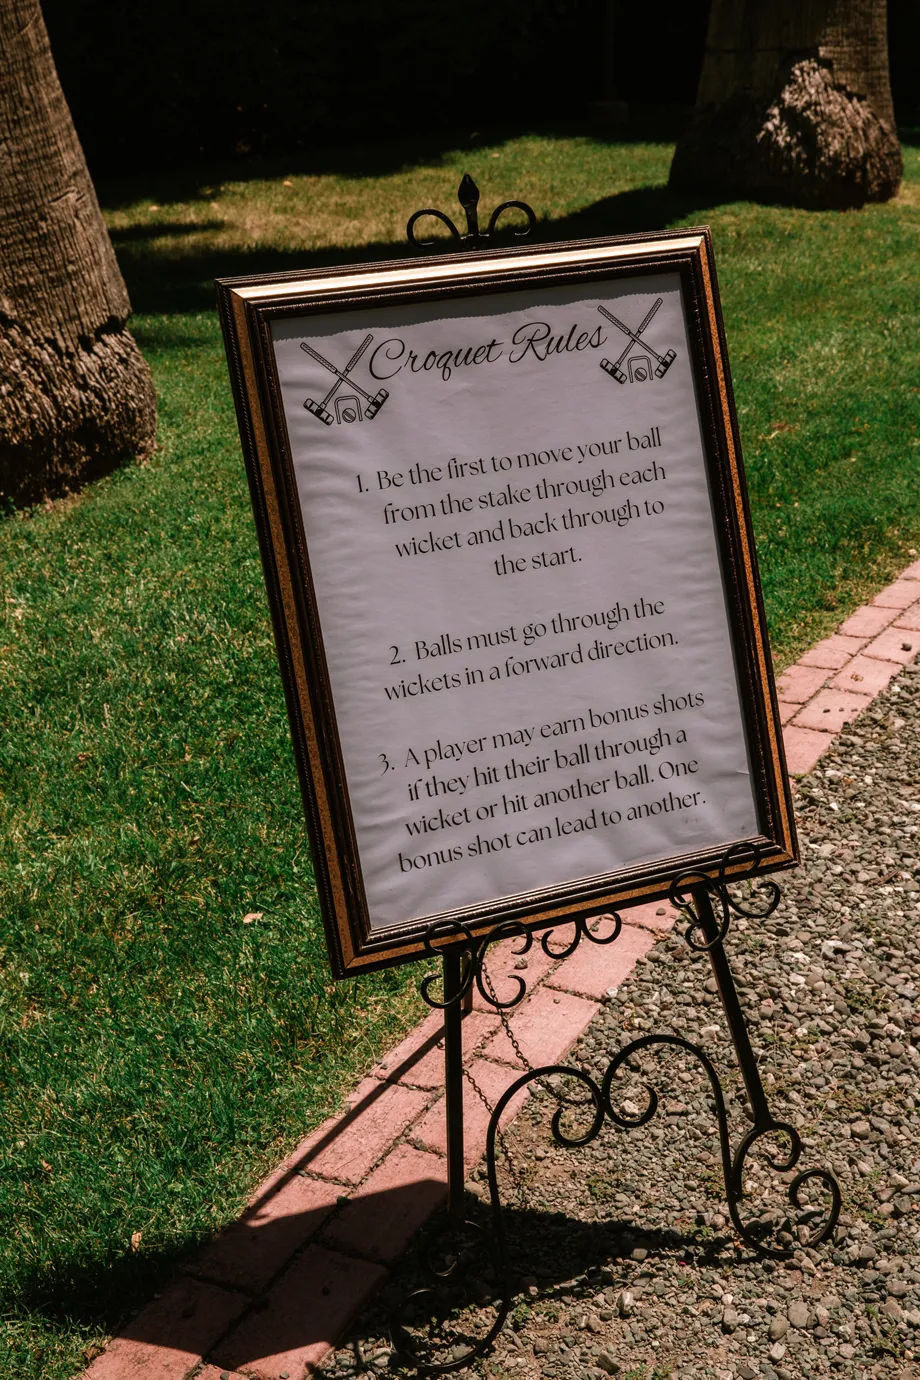 Croquet Rules
1. Be the first to move your ball
from the stake through each
wicket and back through to
the start.
2. Balls must go through the
wickets in a forward direction.
3. A player may earn bonus shots
if they hit their ball through a
wicket or hit another ball. One
bonus shot can lead to another.